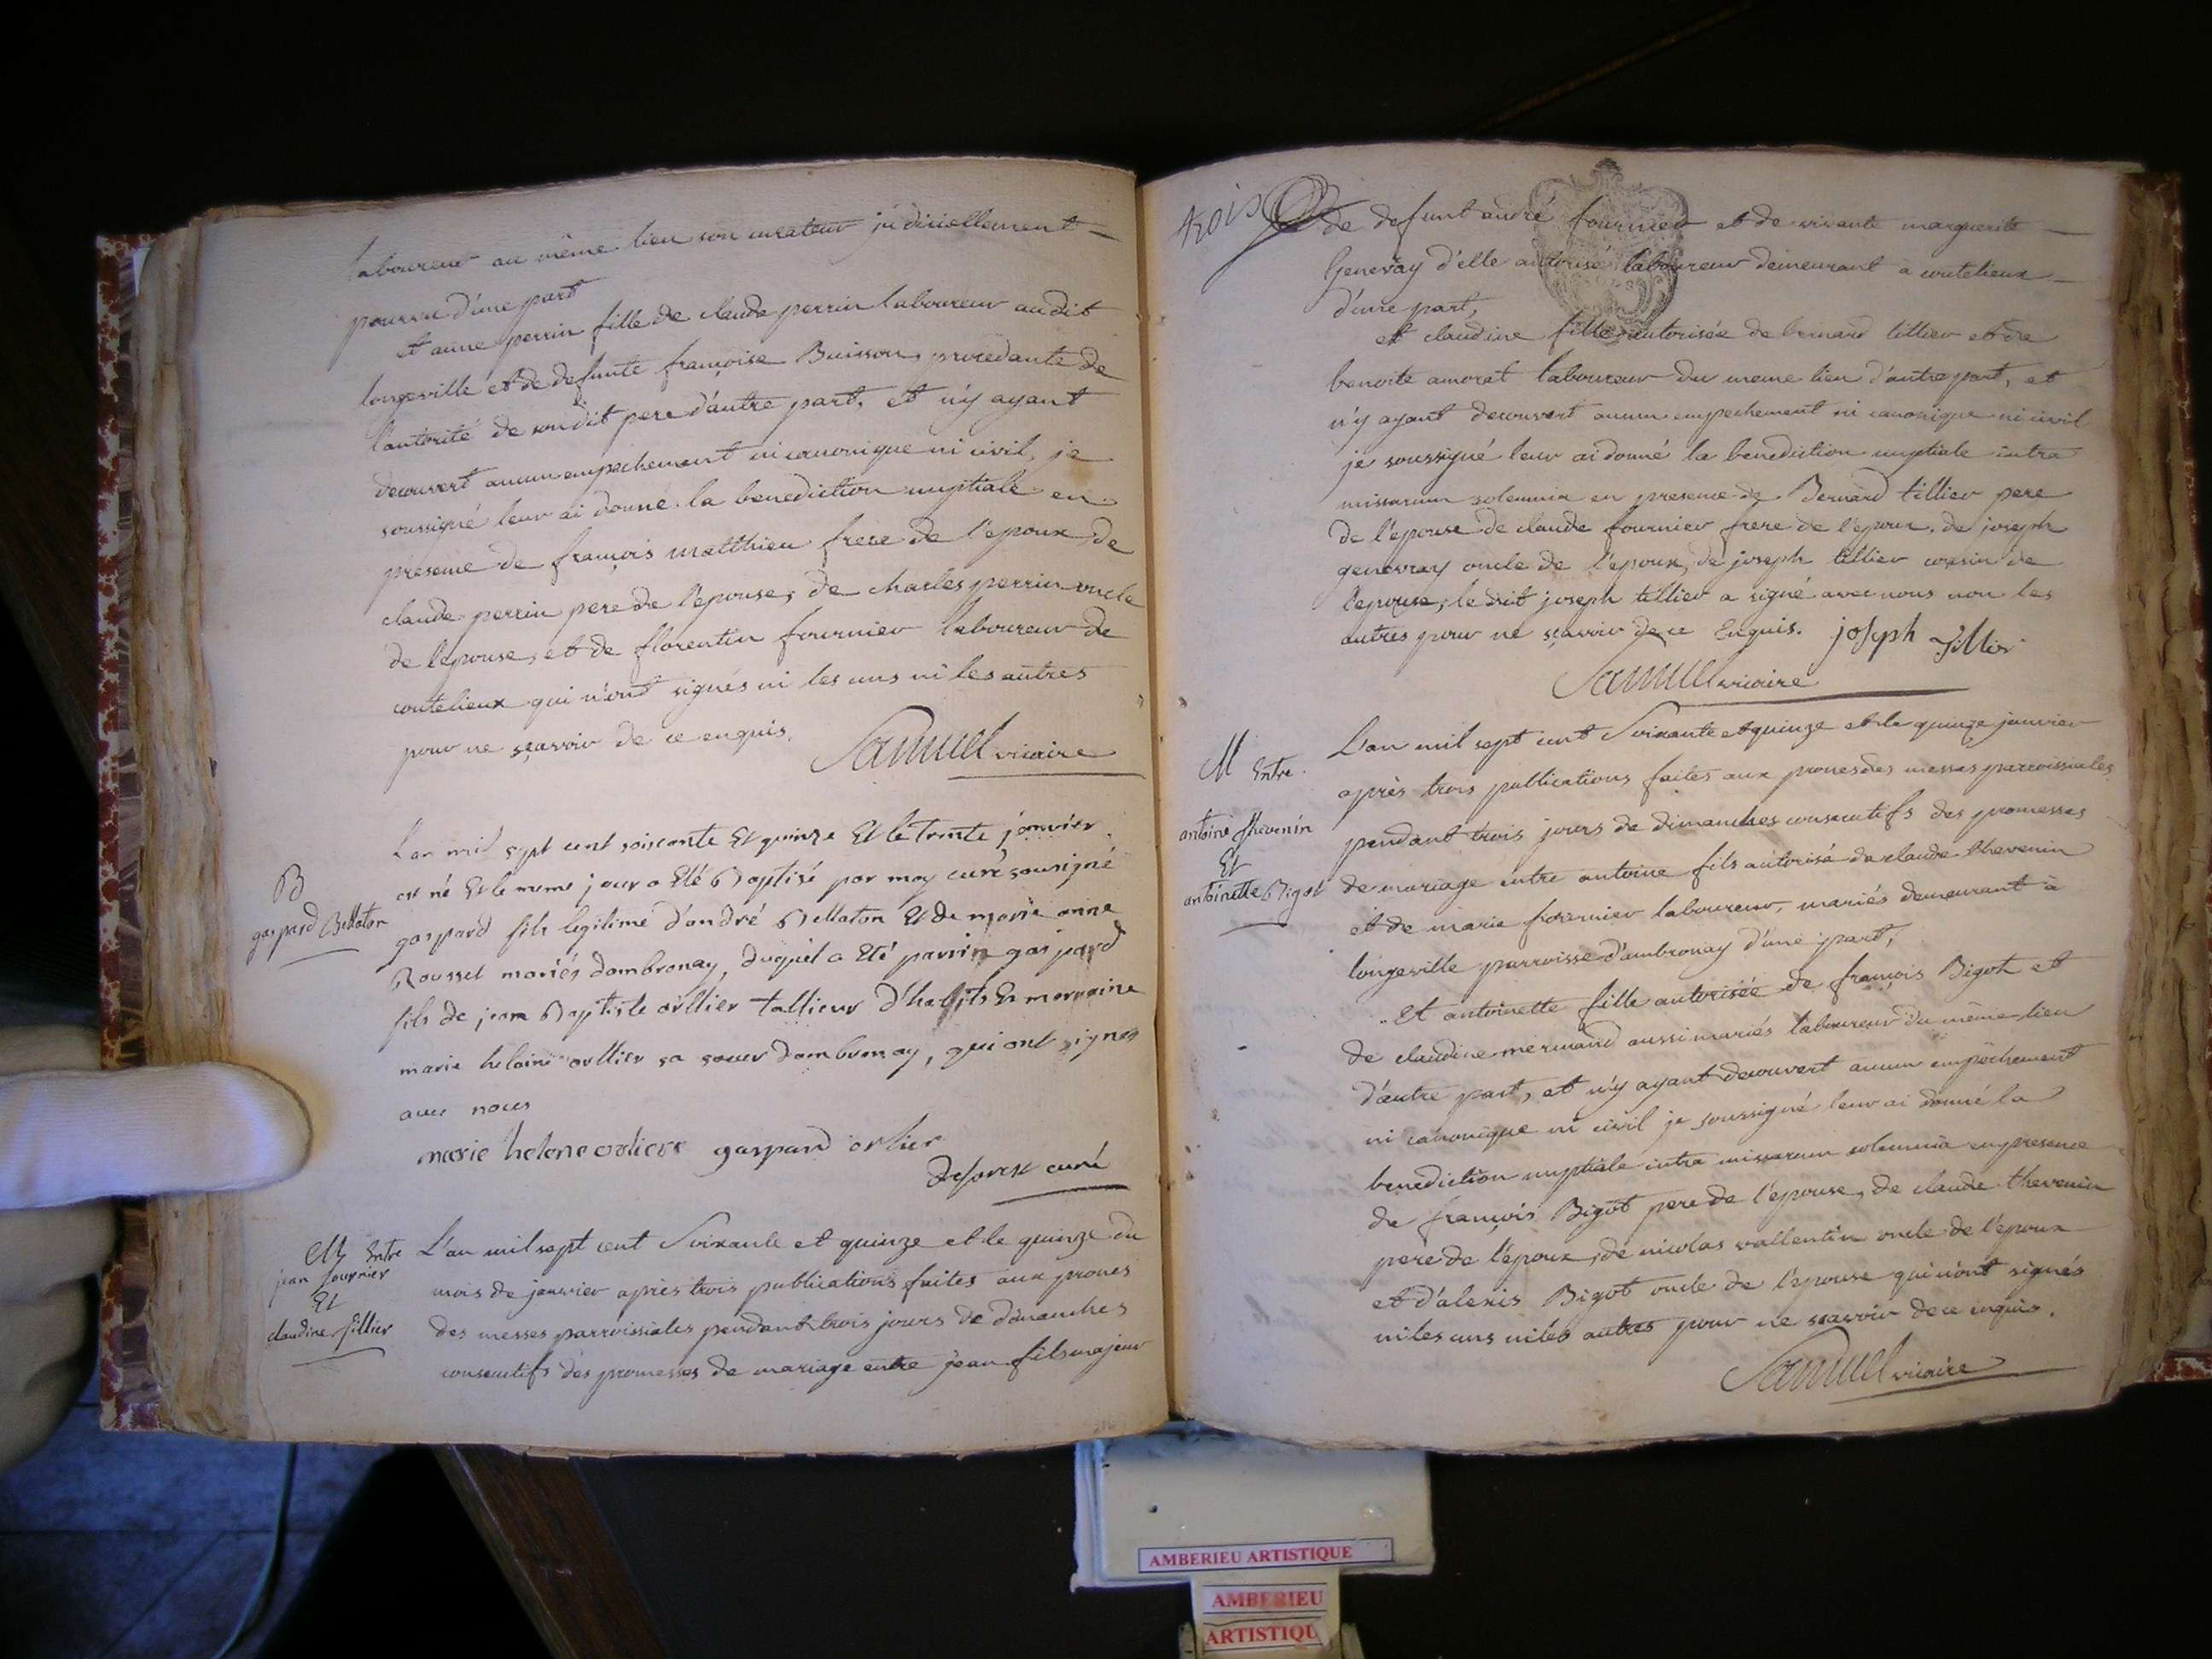 laboureur au même lieu son curateur judiciellement
pourvu d'une part
et anne perrin fille de claude perrin laboureur audit
longeville et de defunte françoise Buisson, procedante de
l'autorité de sondit pere d'autre part, et n'y ayant
decouvert aucun empechement ni canonique ni civil, je
soussigné leur ai donné la benediction nuptiale en
presence de françois matthieu frere de l'epoux, de
claude perrin pere de l'epouse, de charles perrin oncle
de l'epouse, et de florentin fournier laboureur de
coutelieux qui n'ont signés ni les uns ni les autres
pour ne sçavoir de ce enquis.
Samuel vicaire
B
gaspard Bellaton
L'an mil sept cent soixante Et quinze Et le Trente janvier
est né Et le meme jour a Eté Baptisé par moy curé sousigné
gaspard fils legitime d'andré Bellaton Et de marie anne
Roussel mariés d'ambronay, duquel a Eté parrin gaspard
fils de jean Baptiste orllier tallieur d'habits Et marraine
marie helaine orllier sa soeur d'ambronay, qui ont signes
avec nous
marie helene orlier gaspard orlier
Deforest curé
M Entre
jean fournier
Et
claudine tillier
L'an mil sept cent Soixante et quinze et le quinze du
mois de janvier après trois publications faites aux prones
des messes parroissiales pendant trois jours de dimanches
consecutifs des promesses de mariage entre jean fils majeur
trois
de defunt andré fournier et de vivante marguerite
Genevray d'elle autorisé laboureur demeurant a coutelieux
d'une part,
et claudine fille autorisée de bernard tillier et de
benoite amorat laboureur du meme lieu d'autre part, et
n'y ayant decouvert aucun empechement ni canonique ni civil
je soussigné leur ai donné la benediction nuptiale intra
missarum solemnia en presence de Bernard tillier pere
de l'épouse de claude fournier frere de l'epoux, de joseph
genevray oncle de l'époux, de joseph tillier cousin de
l'epouse; ledit joseph tillier a signé avec nous non les
autres pour ne sçavoir de ce Enquis. joseph Tillier
Samuel vicaire
M Entre
antoine thevenin
Et
antoinette Bigot
L'an mil sept cent Soixante et quinze et le quinze janvier
après trois publications faites aux prones des messes parroissiales
pendant trois jours de dimanches consecutifs des promesses
de mariage entre antoine fils autorisé de claude thevenin
et de marie fournier laboureur, mariés demeurant à
longeville parroisse d'ambronay d'une part;
Et antoinette fille autorisée de françois Bigot et
de claudine mermand aussi mariés laboureur du même lieu
d'autre part, et n'y ayant decouvert aucun empêchement
ni canonique ni civil je soussigné leur ai donné la
benediction nuptiale intra missarum solemnia en presence
de françois Bigot pere de l'épouse, de claude thevenin
pere de l'époux, de nicolas vallentin oncle de l'époux
et d'alexis Bigot oncle de l'épouse qui n'ont signés
ni les uns ni les autres pour ne sçavoir de ce enquis.
Samuel vicaire
AMBERIEU ARTISTIQUE
AMBERIEU
ARTISTIQU